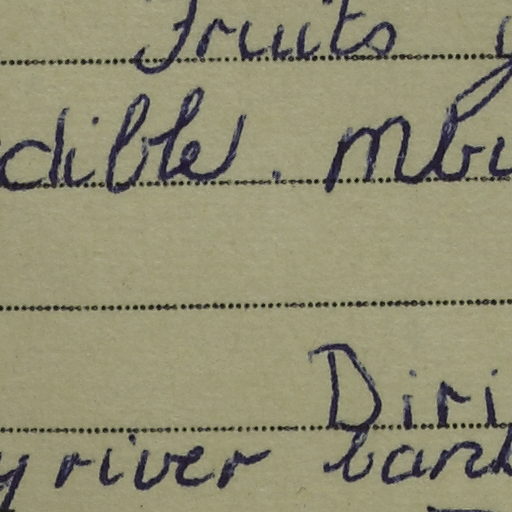 Fruits
dible. Mbu
Diri
y river bank